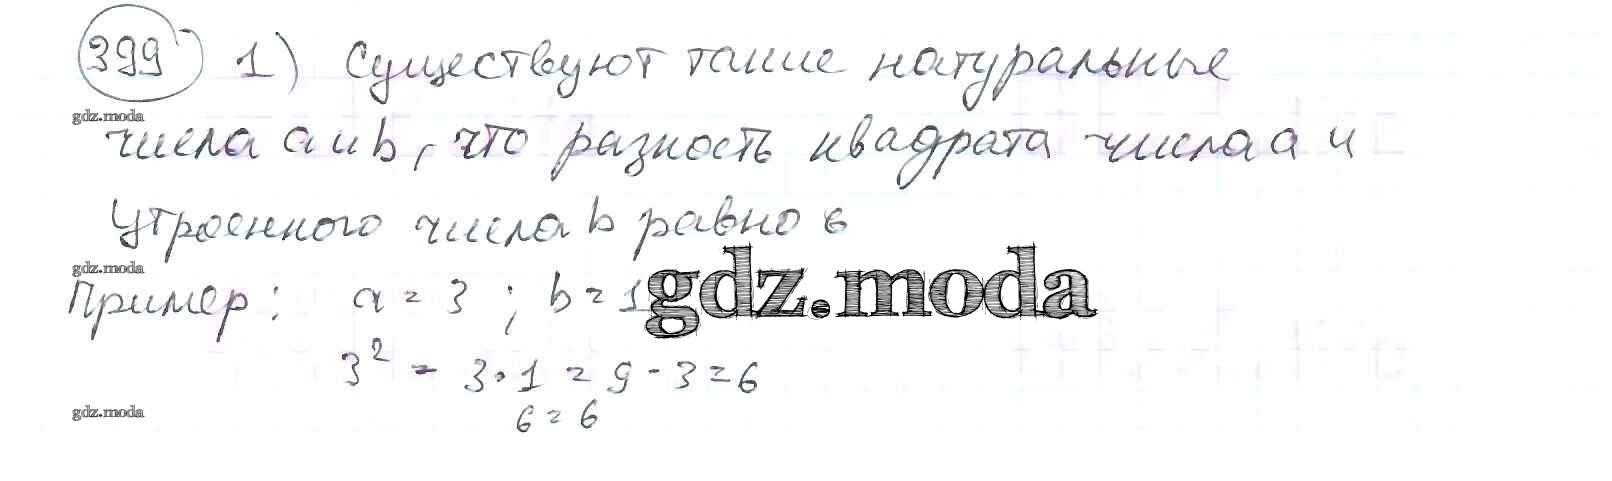 399 1) Существуют такие натуральные
gdz.moda
числа a и b, что разность квадрата числа a и
утроенного числа b равно 6
gdz.moda
Пример: a = 3 ; b = 1
gdz.moda
3² - 3·1 = 9 - 3 = 6
6 = 6
gdz.moda